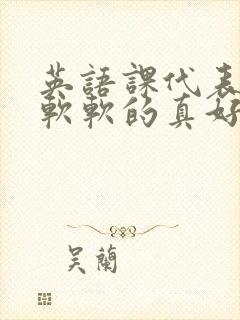 英語課代表
軟軟的真好
吴蘭